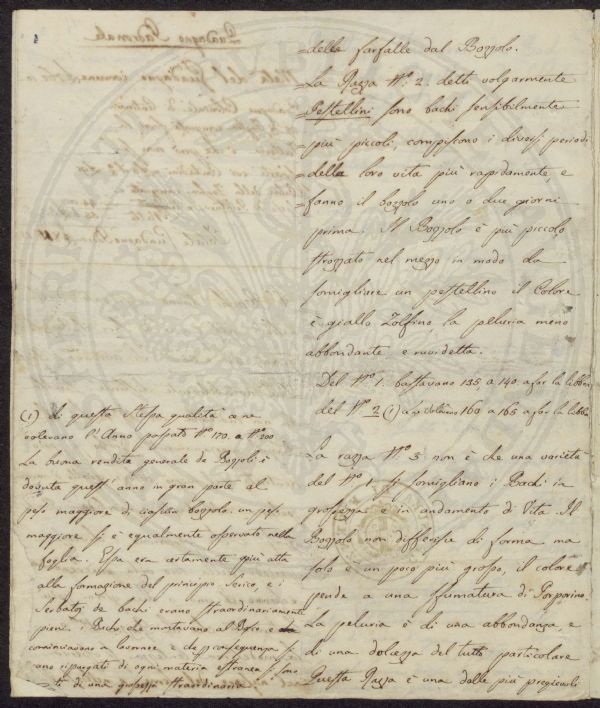 =delle farfalle dal Bozzolo.
=La Razza N.o 2. detti volgarmente
=Pestellini sono bachi sensibilmente
=più piccoli, compiscono i diversi periodi
=della loro vita più rapidamente, e
=fanno il bozzolo uno o due giorni
prima. Il Bozzolo è più piccolo
strozzato nel mezzo in modo da
somigliare un pestellino il Colore
è giallo Zolfino la peluria meno
abbondante e morbida.
Del N.o 1. bastavano 135 a 140 a for la libbra
del N.o 2 (1) 160 a 165 a for la libbra
La razza N.o 3 non è che una varietà
del N.o 1. si somigliano i Bachi in
grossezza e in andamento di Vita. Il
Bozzolo non differisce di forma ma
solo è un poco più grosso, il colore
pende a una sfumatura di Porporino.
La peluria è di una abbondanza, e
di una dolcezza del tutto particolare
Questa Razza è una delle più pregievoli
(1) di questa stessa qualità ce ne
volevano l'Anno passato N.o 170. a N.o 200
La buona rendita generale de Bozzoli è
dovuta quest'anno in gran parte al
peso maggiore di ciascun bozzolo. un peso
maggiore si è egualmente osservato nella
foglia. Essa era certamente più atta
alla formazione del principio Serico, e i
Serbatoj de bachi erano straordinariamente
pieni. i Bachi che montavano al Bosco e
cominciavano a lavorare e che p conseguenza si
erano ripurgati di ogni materia estranea, sono
=ti di una grossezza straordinaria